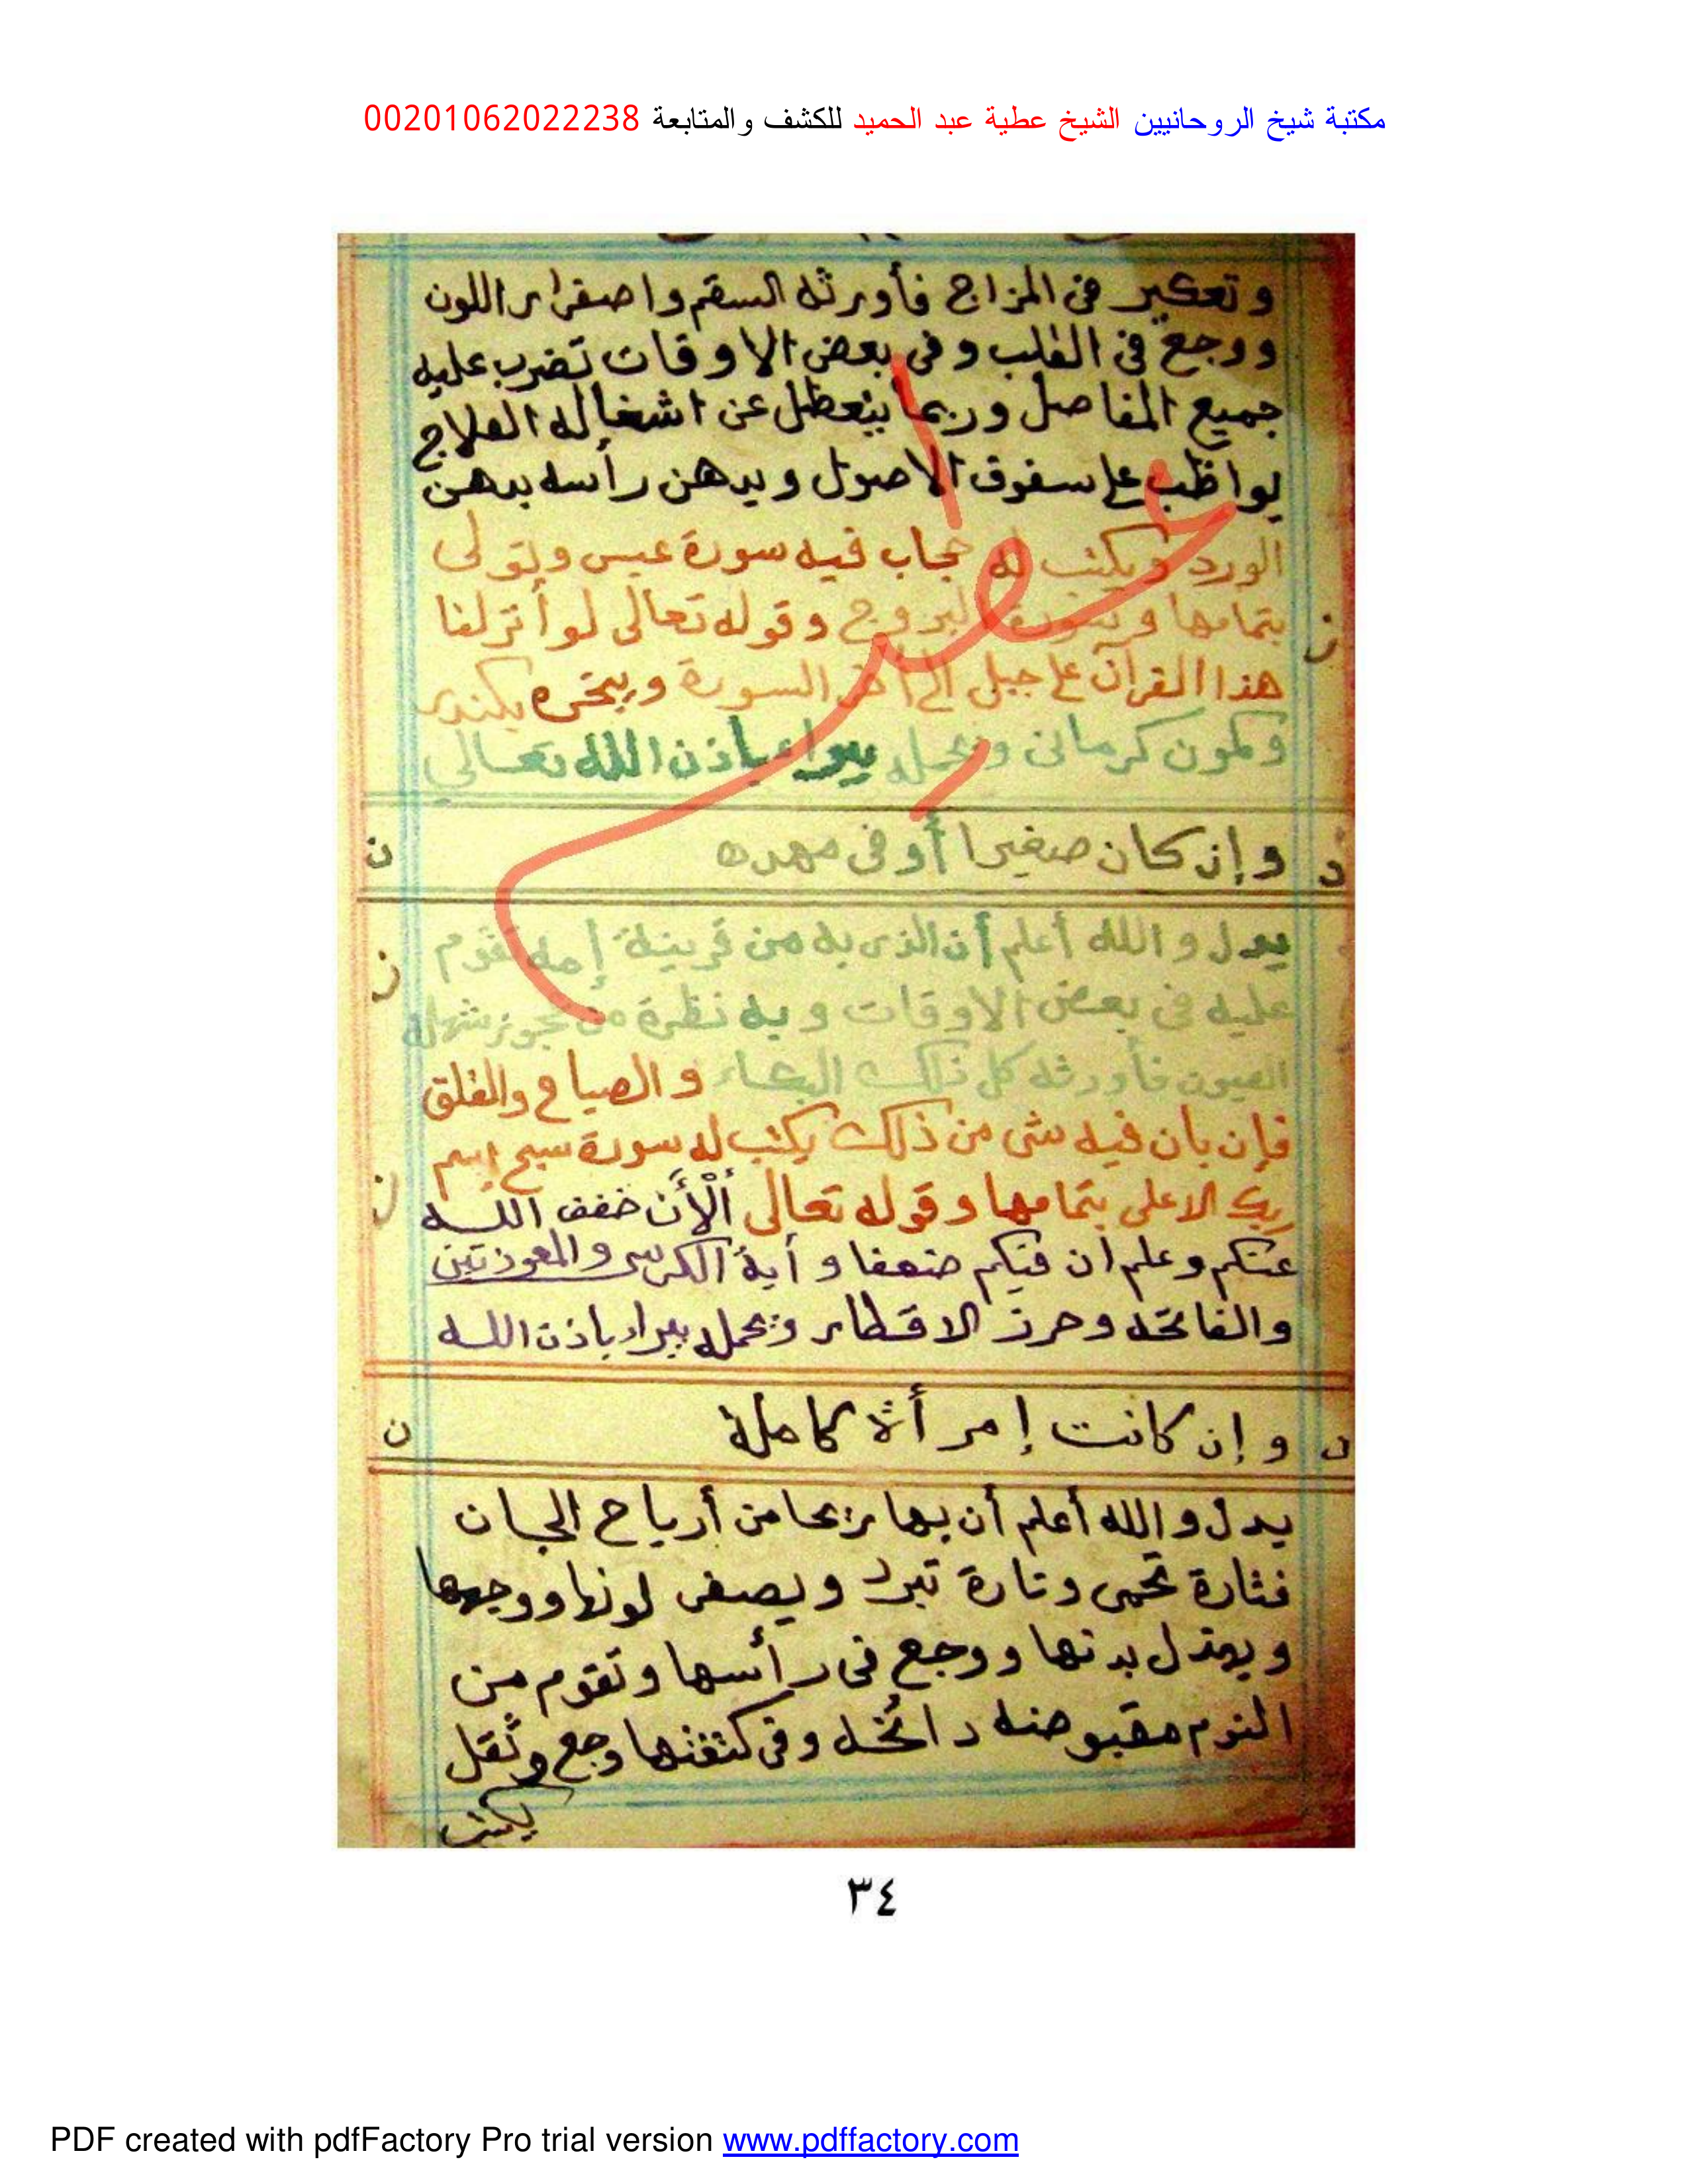 مكتبة شيخ الروحانيين الشيخ عطية عبد الحميد للكشف والمتابعة 00201062022238
وتعكير فى المزاج فأورثه السقم واصفرار اللون
ووجع فى القلب وفى بعض الاوقات تضرب عليه
جميع المفاصل وربما يتعطل عن اشغاله العلاج
يواظب على سفوف الاصول ويدهن رأسه بدهن
الورد ويكتب له حجاب فيه سورة عبس وتولى
بتمامها وسورة البروج وقوله تعالى لو أنزلنا
هذا القرآن على جبل الى أخر السورة ويبخره بكندر
وكمون كرمانى ويحمله يبراء باذن الله تعالي
وإن كان صغيرا أو فى مهده
يدل والله أعلم أن الذى به من قرينة إمه تقوم
عليه فى بعض الاوقات وبه نظرة من عجوز شهله
العيون فأورثه كل ذلك البكاء والصياح والقلق
فإن بان فيه شى من ذلك يكتب له سورة سبح إسم
ربك الاعلى بتمامها وقوله تعالى ألْأَن خفف الله
عنكم وعلم أن فيكم ضعفا وأية الكرسى والمعوذتين
والفاتحه وحرز الاقطار ويحمله يبراء باذن الله
وإن كانت إمرأة كاملة
يدل والله أعلم أن بها ريحا من أرياح الجان
فتارة تحمى وتارة تبرد ويصفر لونها ووجهها
ويهتدل بدنها ووجع فى رأسها وتقوم من
النوم مقبوضه دائخه وفى كتفها وجع وثقل
يكتب
٣٤
PDF created with pdfFactory Pro trial version www.pdffactory.com